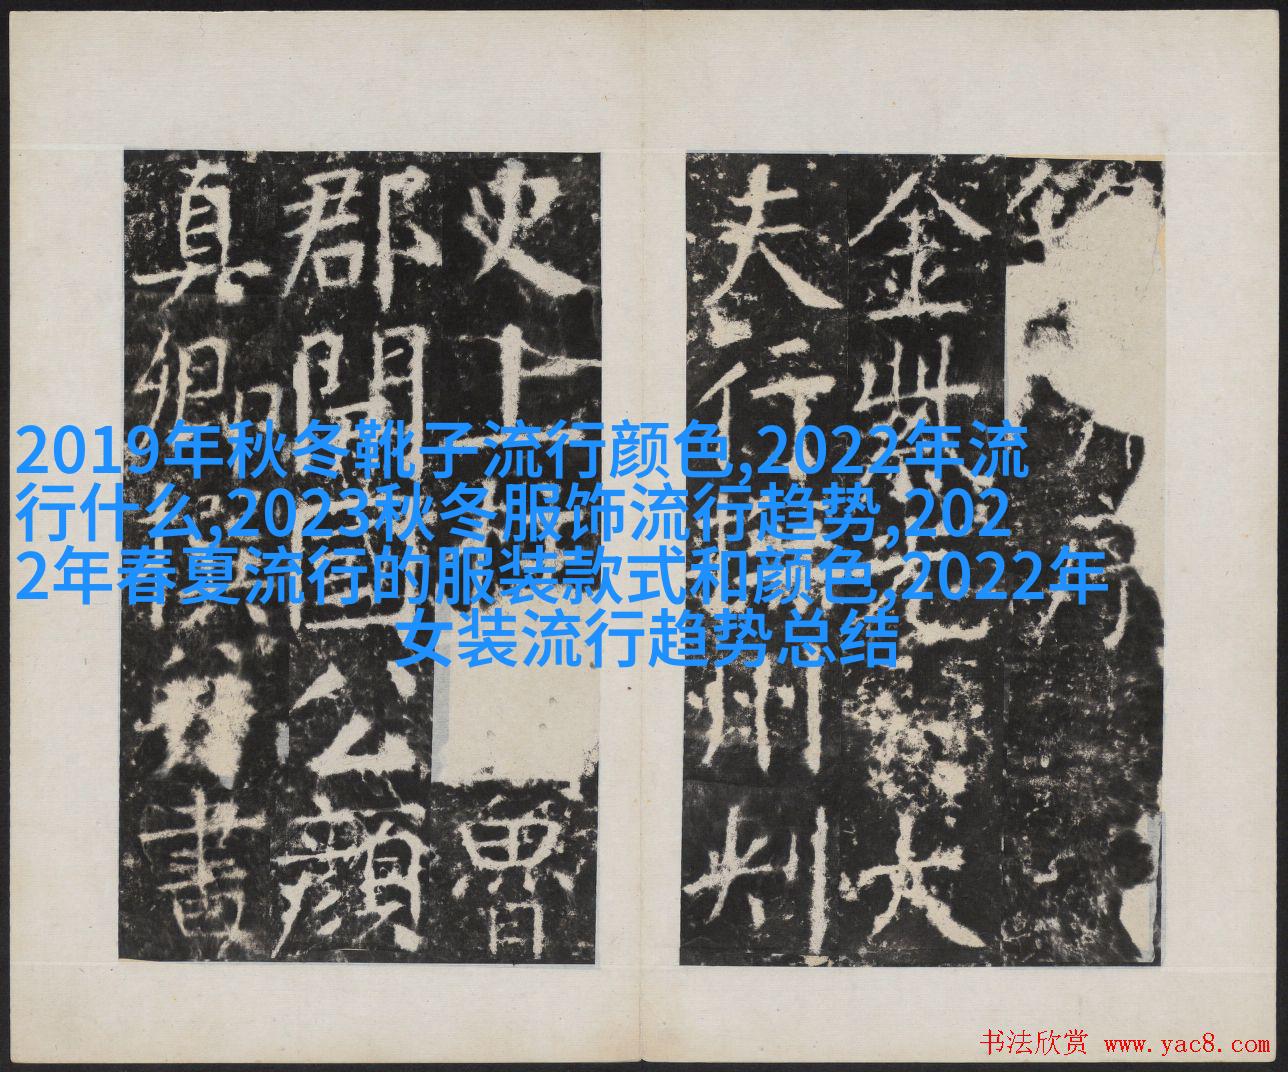 2019年秋冬靴子流行颜色,2022年流
行什么,2023秋冬服饰流行趋势,202
2年春夏流行的服装款式和颜色,2022年
女装流行趋势总结
金紫光大
夫行州刺
史上柱魯
郡開國公顏
真卿撰并書
书法欣赏 www.yac8.com